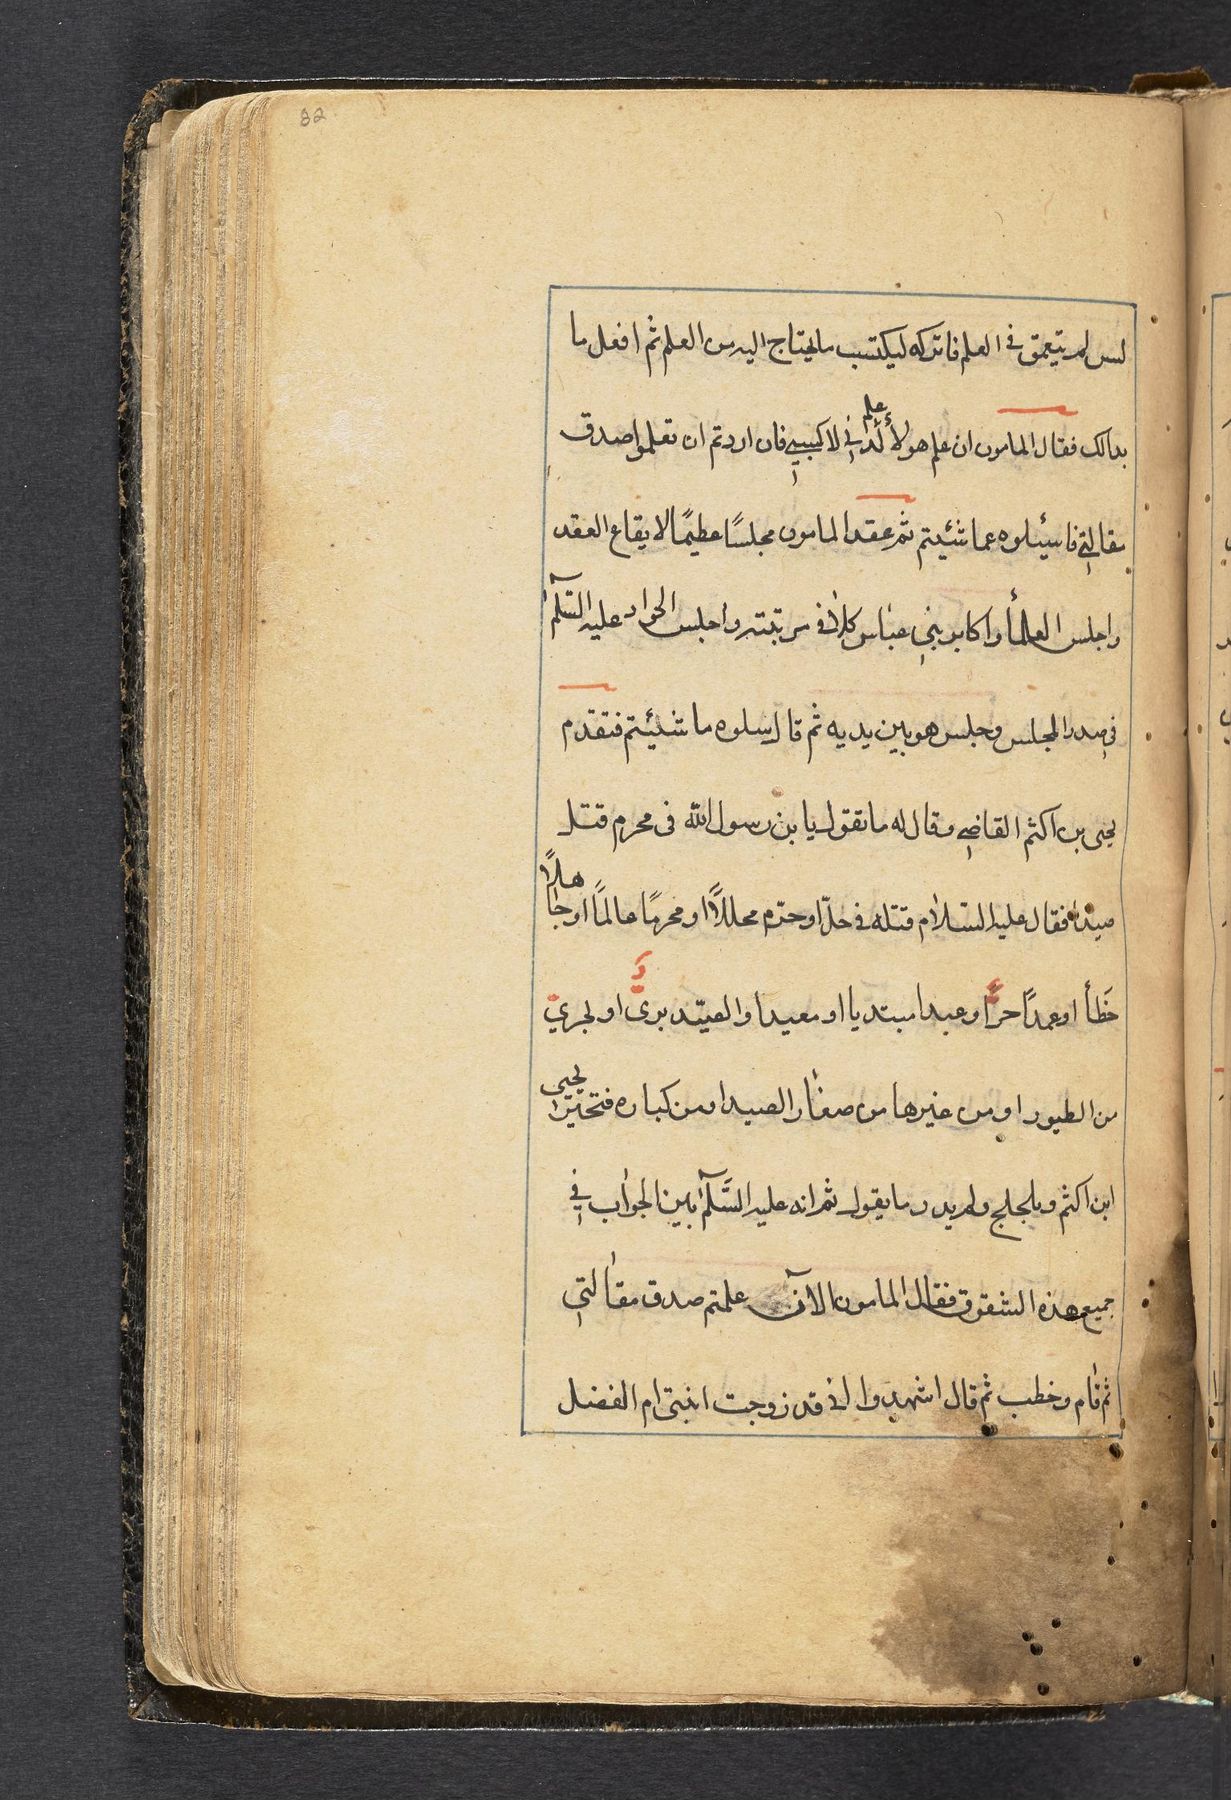 32
لسن لم يتعمق فى العلم فاتركه ليكتسب ما يحتاج اليه من العلم ثم افعل ما
بدالك فقال المامون ان علم هولاء علم لدنى لا كسبي فان اردتم ان تعلموا صدق
مقالتي فاسئلوه عما شئيتم ثم عقد المامون مجلسًا عظيمًا لايقاع العقد
واجلس العلمأ واكابر بني عباس كلا فى مرتبته واجلس الجواد عليه السلم
في صدر المجلس وجلس هو بين يديه ثم قال سلوه ما شئيتم فتقدم
يحيى بن اكثم القاضي وقال له ما تقول يا بن رسول الله فى محرم قتل
صيدا فقال عليه السلام قتله فى حلّ او حرم محللًا او محرمًا عالمًا او جاهلًا
خَطأ او عمدًا حرًا او عبدا مبتديا او معيدا والصيد برى او بحري
من الطيور او من غيرها من صغار الصيد او من كباره فتحير يحيى
ابن اكثم وتلجلج ولم يدر ما يقول ثم انه عليه السَّلم بين الجواب في
جميع هذه الشقوق فقال المامون الآن علمتم صدق مقالتي
ثم قام وخطب ثم قال اشهدوا انى قد زوجت ابنتى ام الفضل